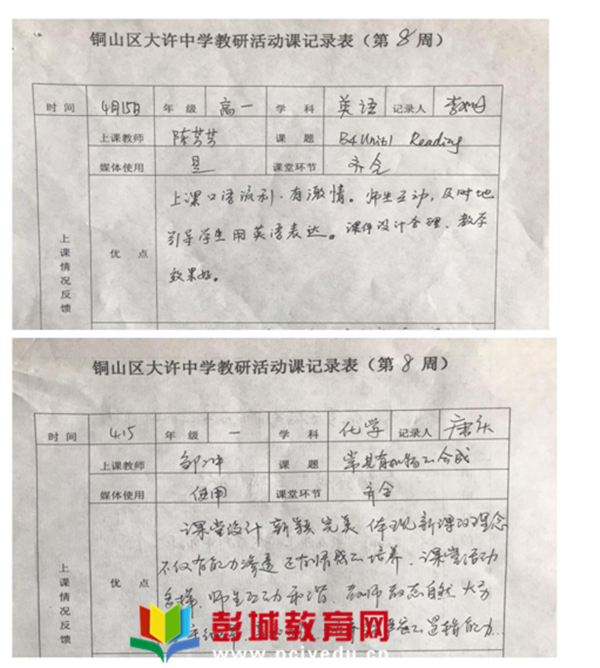 铜山区大许中学教研活动课记录表（第 8 周）
时 间 4月15日 年 级 高一 学 科 英语 记录人
上课教师 陈芳芳 课 题 B4 Unit1 Reading
媒体使用 是 课堂环节 齐全
上课情况反馈 优 点
上课口语流利、有激情。师生互动，及时地
引导学生用英语表达。课件设计合理、教学
效果好。
铜山区大许中学教研活动课记录表（第 8 周）
时 间 4.15 年 级 一 学 科 化学 记录人
上课教师 邹冲 课 题 常见有机物的合成
媒体使用 使用 课堂环节 齐全
上课情况反馈 优 点
课堂设计新颖完美 体现新课改理念
不仅有能力渗透还有情感的培养。课堂活动
多样、师生互动和谐、教师教态自然大方
逻辑能力
彭城教育网
www.pcjyedu.cn